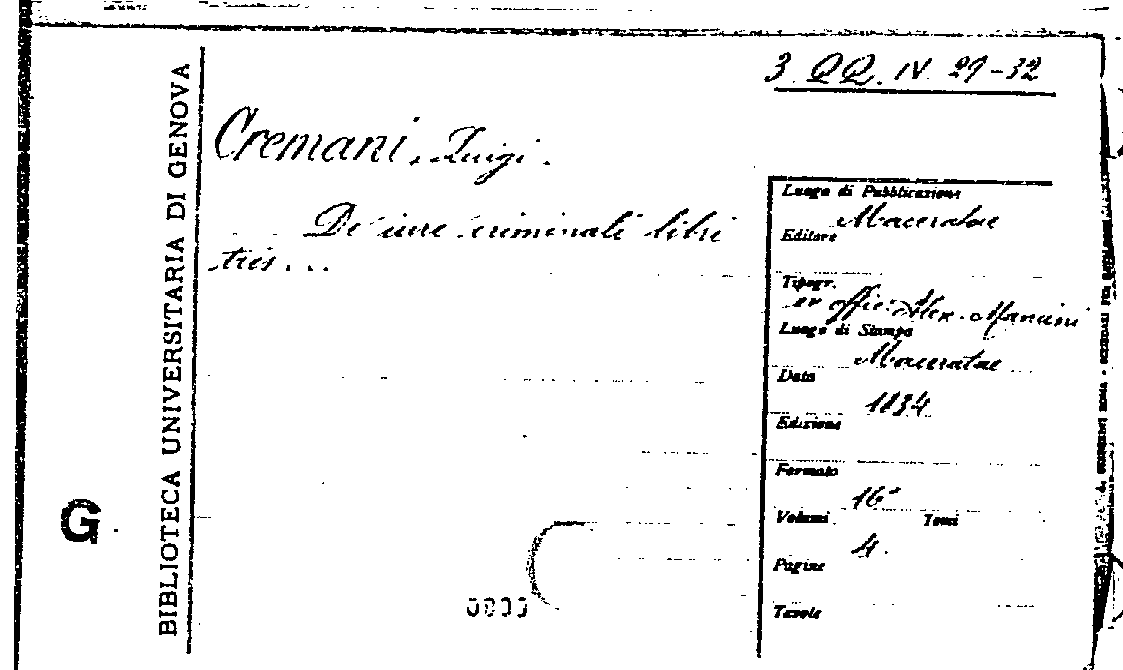 3 QQ. IV. 29-32
BIBLIOTECA UNIVERSITARIA DI GENOVA
Cremani, Luigi.
De iure criminali libri
tres...
Luogo di Pubblicazione
Maceratae
Editore
Tipogr.
ex offic. Alex. Mancini
Luogo di Stampa
Maceratae
Data
1834
Edizione
Formato
16°
Volumi Tomi
4.
Pagine
Tavole
G